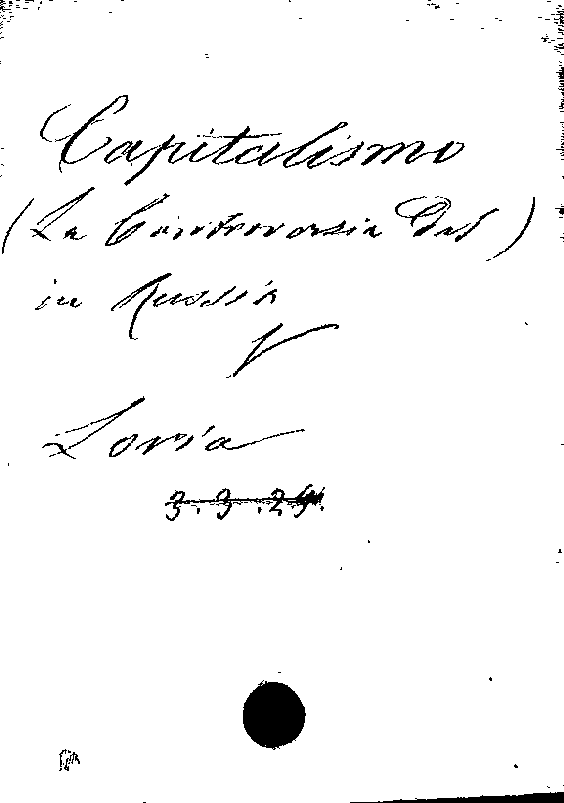 Capitalismo
(La Controversia Del)
in Russia
V
Loria
3.3.29.